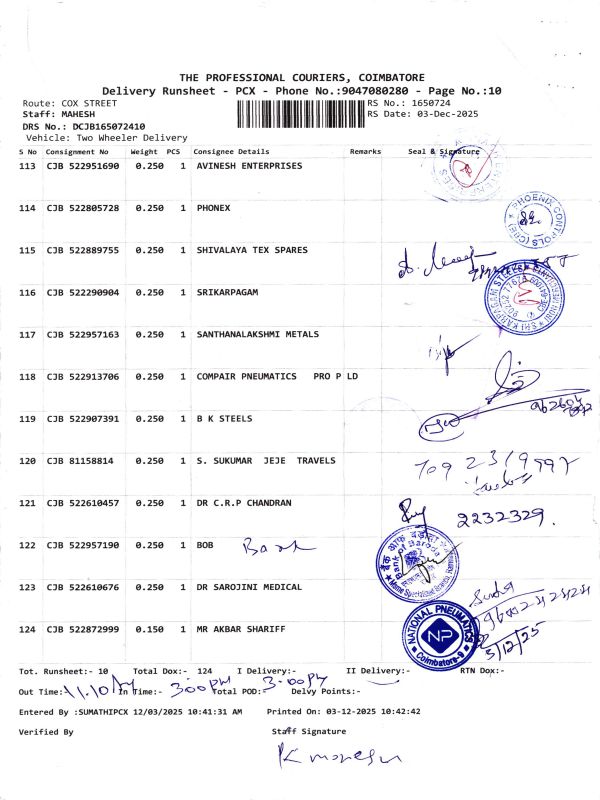 THE PROFESSIONAL COURIERS, COIMBATORE
Delivery Runsheet - PCX - Phone No.:9047080280 - Page No.:10
Route: COX STREET RS No.: 1650724
Staff: MAHESH RS Date: 03-Dec-2025
DRS No.: DCJB165072410
Vehicle: Two Wheeler Delivery
S No Consignment No Weight PCS Consignee Details Remarks Seal & Signature
113 CJB 522951690 0.250 1 AVINESH ENTERPRISES
114 CJB 522805728 0.250 1 PHONEX
PHOENIX CONTROLS (CBE)
115 CJB 522889755 0.250 1 SHIVALAYA TEX SPARES
116 CJB 522290904 0.250 1 SRIKARPAGAM
SRI KARPAGAM STEELS
117 CJB 522957163 0.250 1 SANTHANALAKSHMI METALS
118 CJB 522913706 0.250 1 COMPAIR PNEUMATICS PRO P LD
119 CJB 522907391 0.250 1 B K STEELS
120 CJB 81158814 0.250 1 S. SUKUMAR JEJE TRAVELS
121 CJB 522610457 0.250 1 DR C.R.P CHANDRAN 2232329.
122 CJB 522957190 0.250 1 BOB Bank
बैंक ऑफ़ बड़ौदा
Bank of Baroda
123 CJB 522610676 0.250 1 DR SAROJINI MEDICAL
124 CJB 522872999 0.150 1 MR AKBAR SHARIFF
NATIONAL PNEUMATICS
NP
Coimbatore-9
3/12/25
Tot. Runsheet:- 10 Total Dox:- 124 I Delivery:- II Delivery:- RTN Dox:-
Out Time:- 11.10 In Time:- 3:00 PM Total POD:- 3:00 PM Delvy Points:-
Entered By :SUMATHIPCX 12/03/2025 10:41:31 AM Printed On: 03-12-2025 10:42:42
Verified By Staff Signature
K mahesh